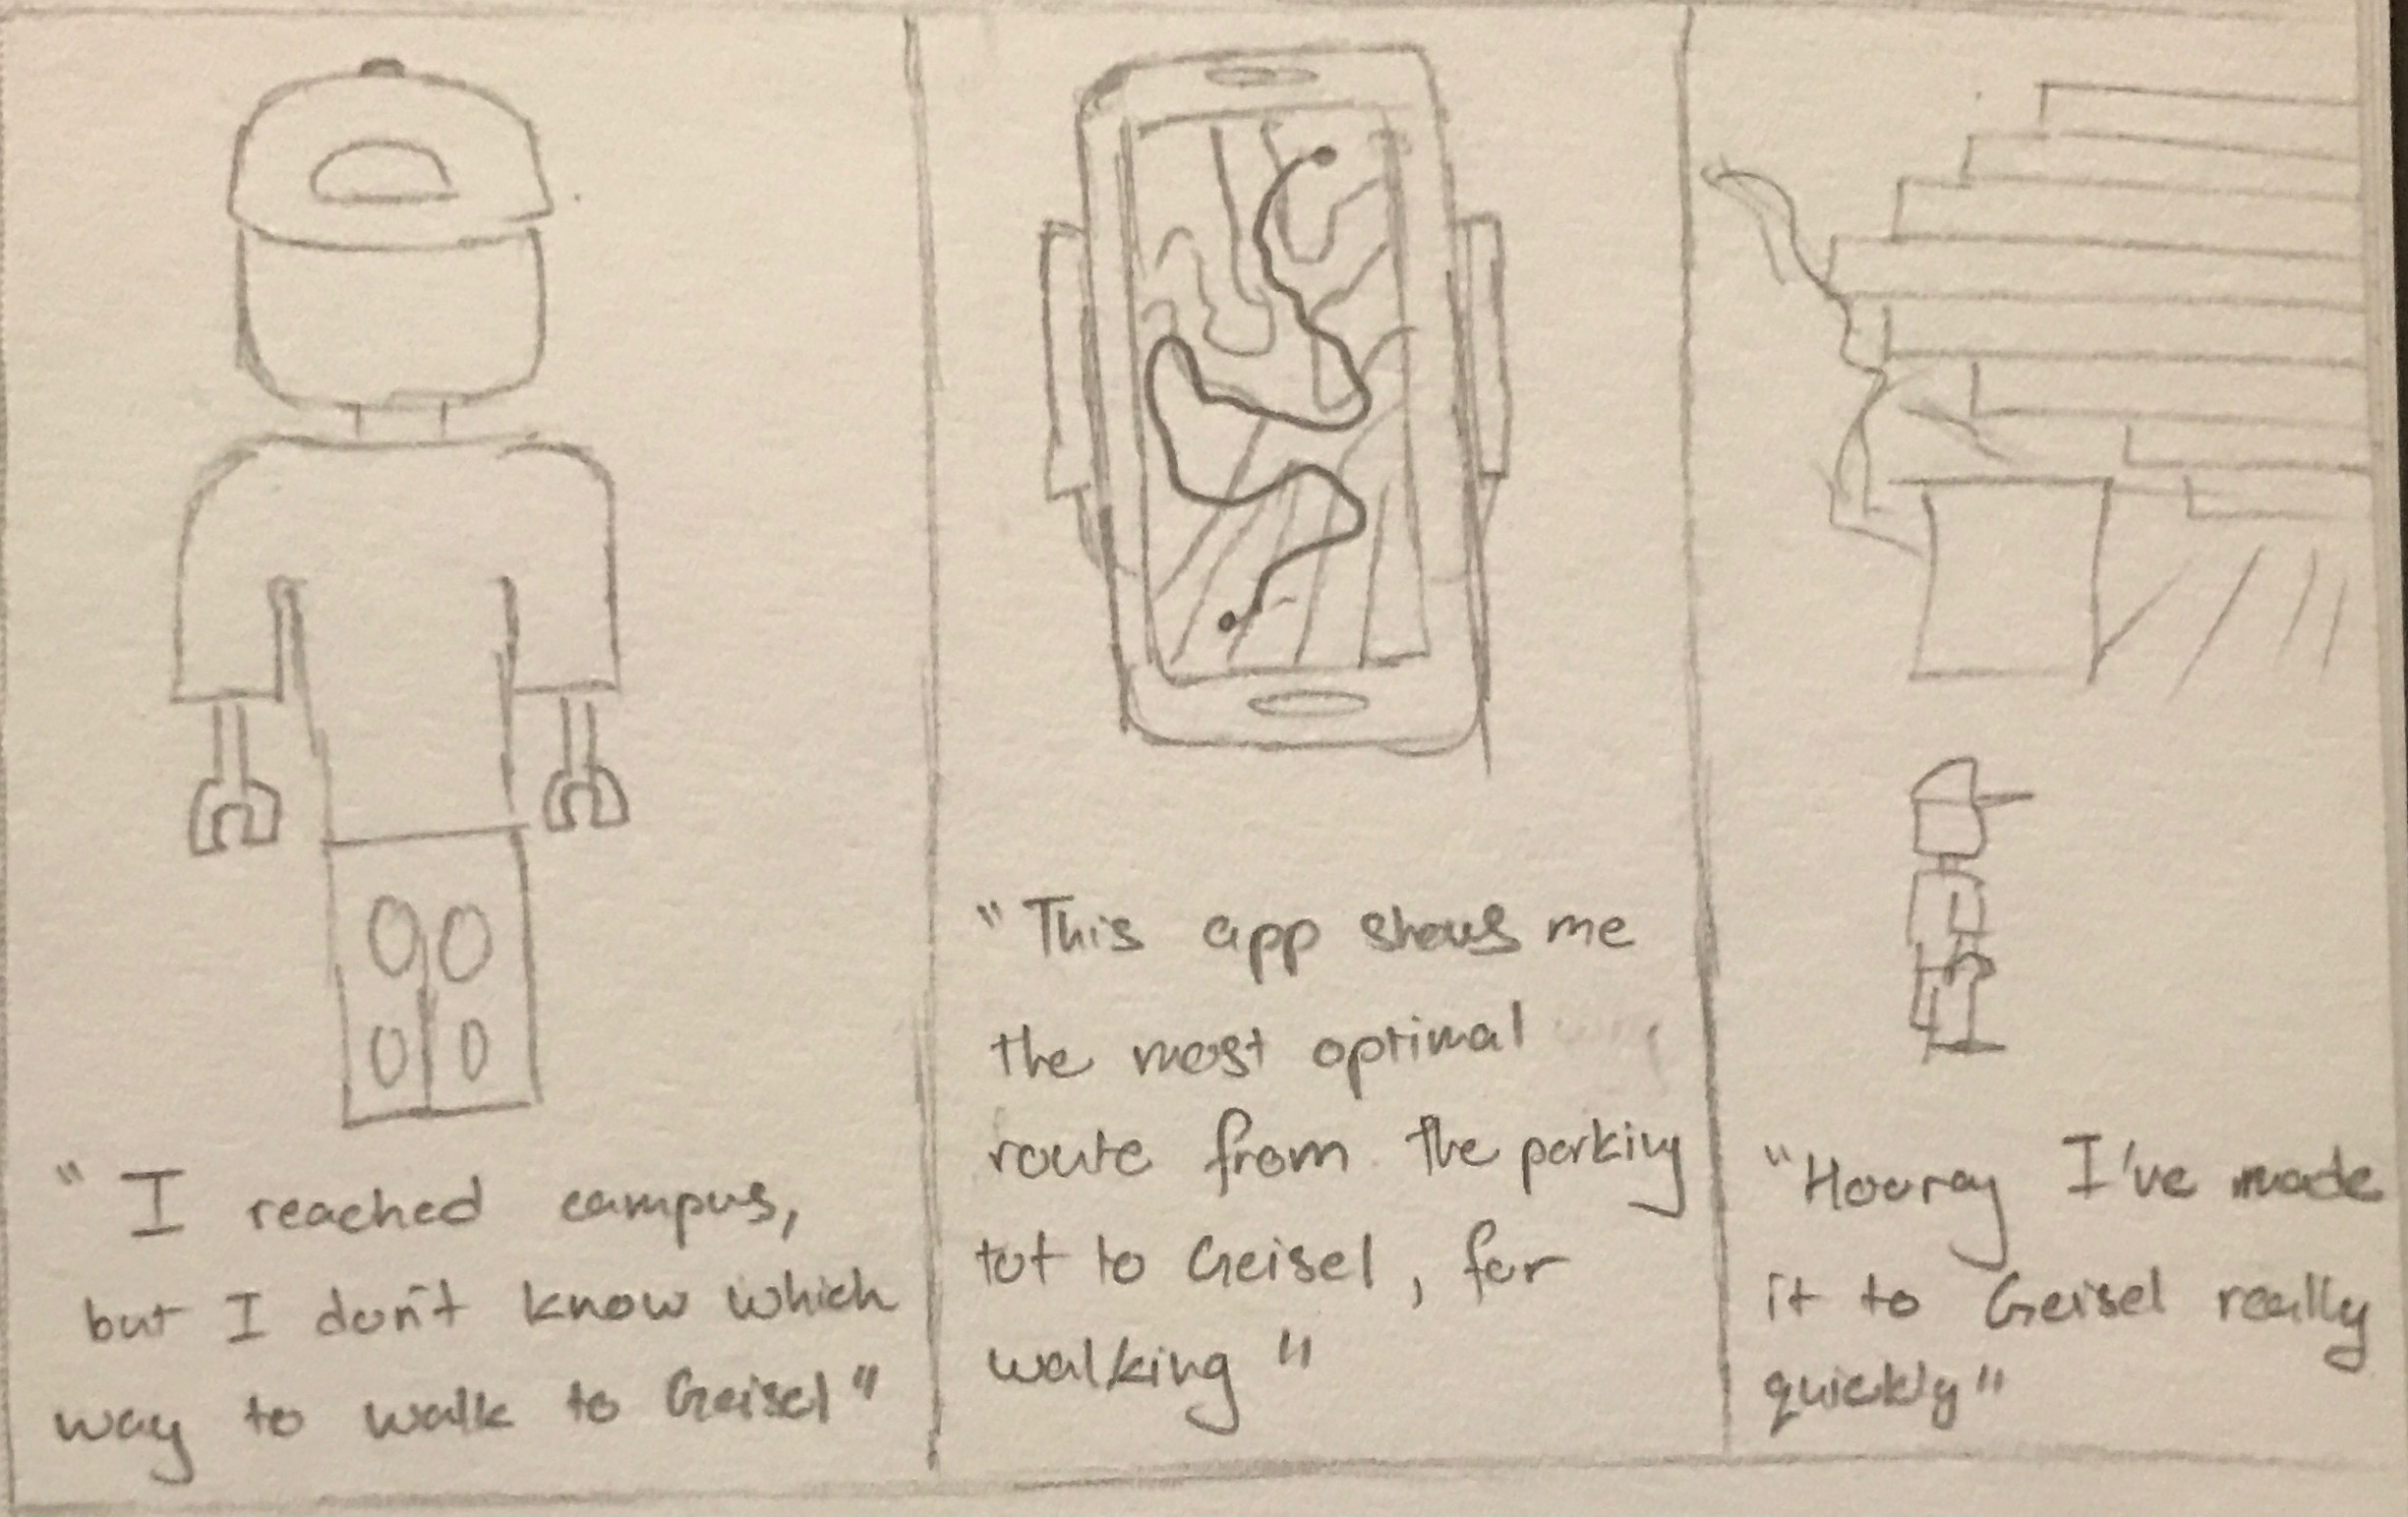 "I reached campus,
but I don't know which
way to walk to Geisel"
"This app shows me
the most optimal
route from the parking
tot to Geisel, for
walking"
"Hooray I've made
it to Geisel really
quickly"